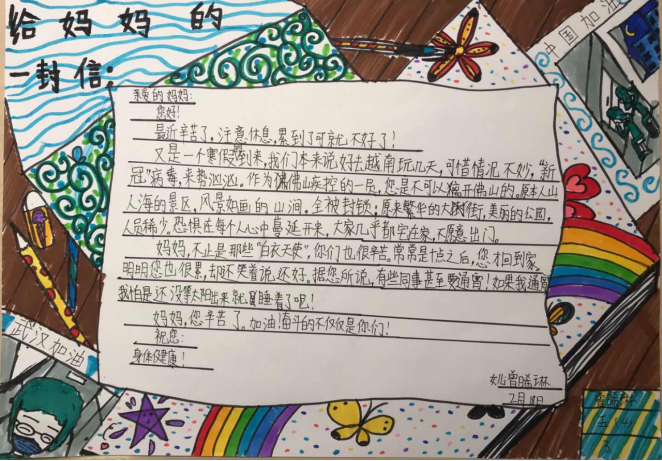 给妈妈的
一封信:
中国加油
亲爱的妈妈:
您好!
最近辛苦了,注意休息,累到了可就不好了!
又是一个寒假到来,我们本来说好去越南玩几天,可惜情况不妙,"新
冠"病毒,来势汹汹。作为佛山疾控的一员,您是不可以离开佛山的。原本人山
人海的景区,风景如画的山涧,全被封锁;原来繁华的大街,美丽的公园,
人员稀少,恐惧在每个人心中蔓延开来,大家几乎都宅在家,不愿意出门。
妈妈,不止是那些"白衣天使",你们也很辛苦。常常是十点之后,您才回到家。
明明您也很累,却还笑着说还好。据您所说,有些同事甚至要通宵!如果我通宵
我怕是还没等太阳出来就睡着了呢!
妈妈,您辛苦了。加油!奋斗的不仅仅是你们!
祝您:
身体健康!
曾晞琳
2月
武汉加油